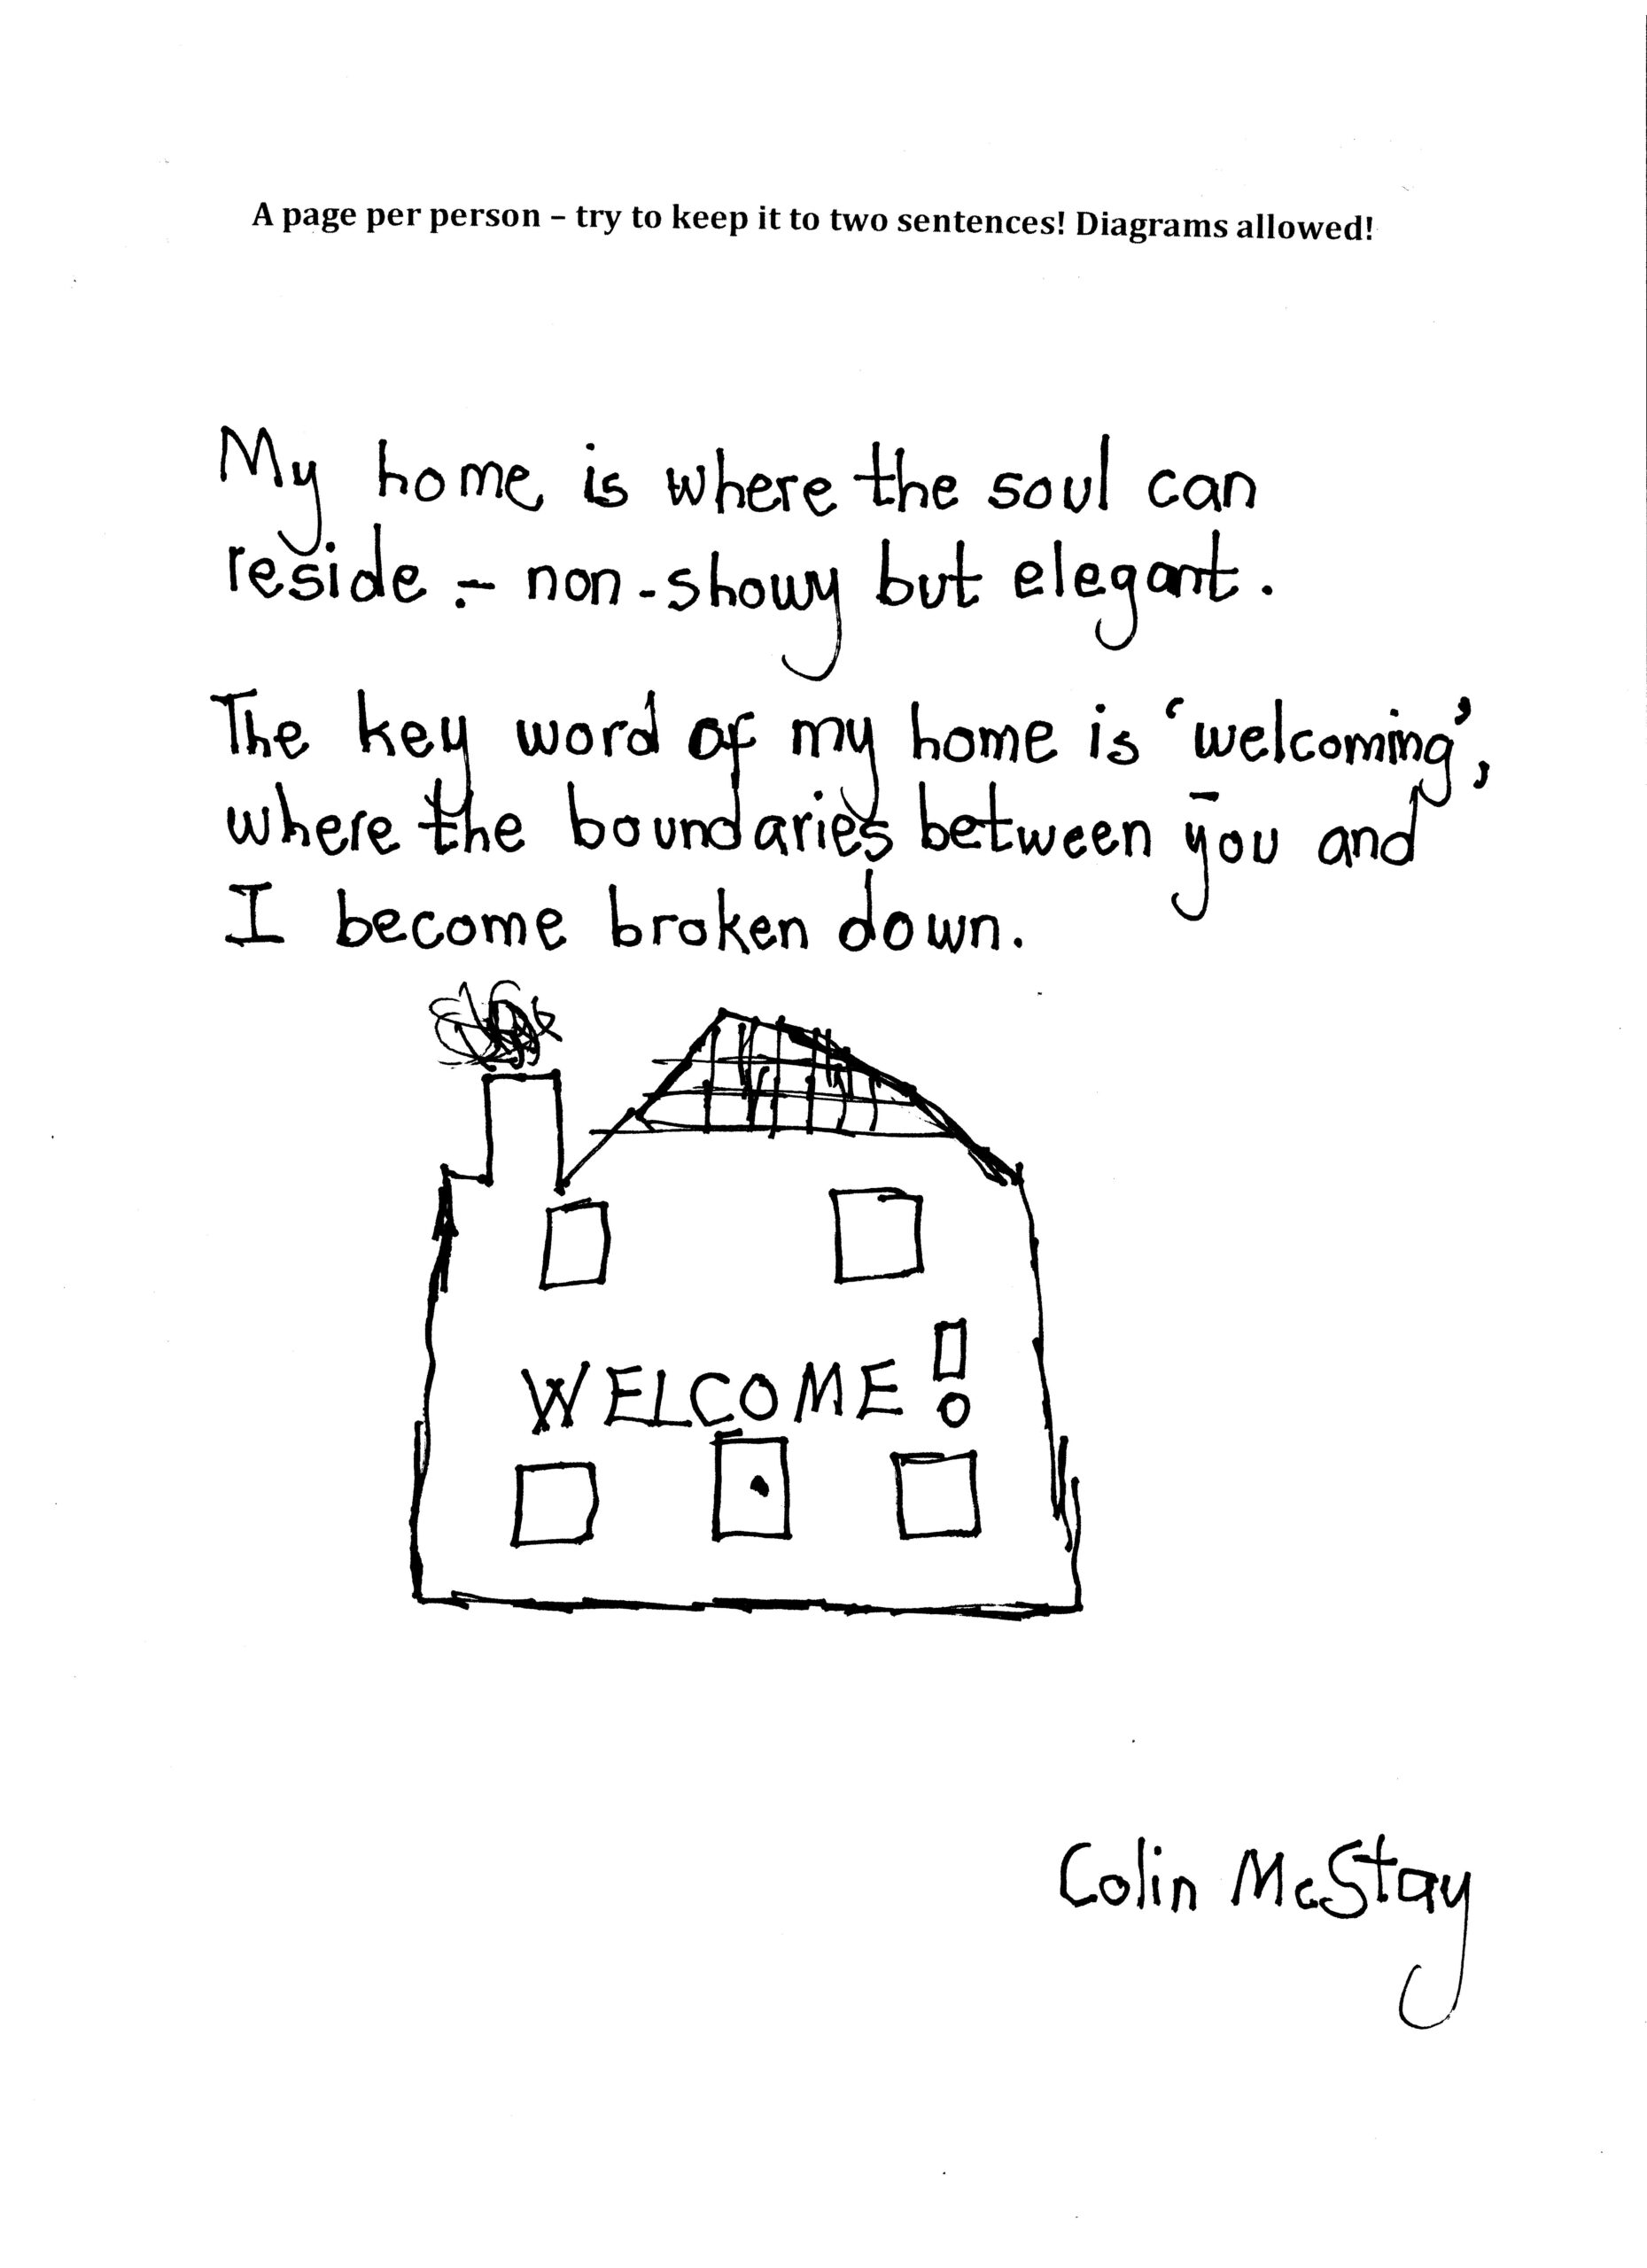 A page per person – try to keep it to two sentences! Diagrams allowed!
My home is where the soul can
reside :- non-showy but elegant.
The key word of my home is ‘welcoming’,
where the boundaries between you and
I become broken down.
WELCOME!
Colin McStay